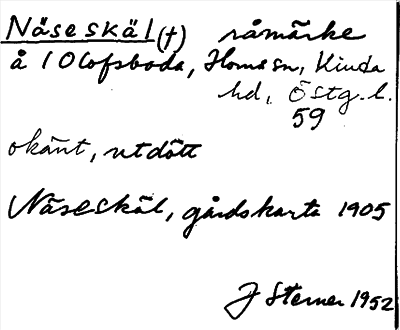 Näseskäl (†) råmärke
å / Olofsboda, Horns sn, Kinda
hd, Östg.l.
59
okänt, utdött
Näseskäl, gårdskarta 1905
J Sterner 1952